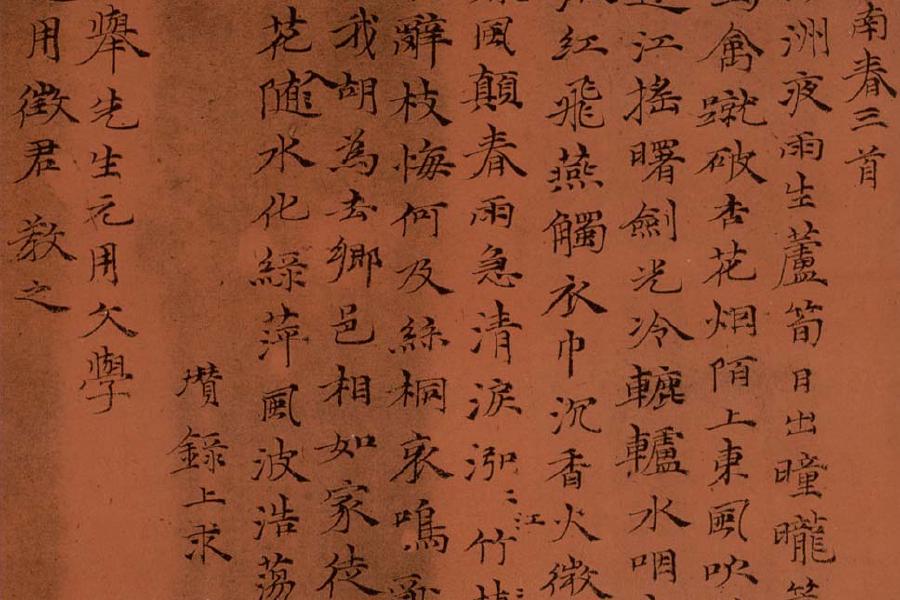 南春三首
洲夜雨生蘆筍日出曈曨
禽蹴破杏花烟陌上東風吹
江搖曙劍光冷轆轤水咽
紅飛燕觸衣巾沉香火微
風顛春雨急清淚泓〻江竹枝
辭枝悔何及絲桐哀鳴
我胡為去鄉邑相如家徒
花隨入水化綠萍風波浩蕩
瓚錄上求
舉先生元用文學
用徵君 教之